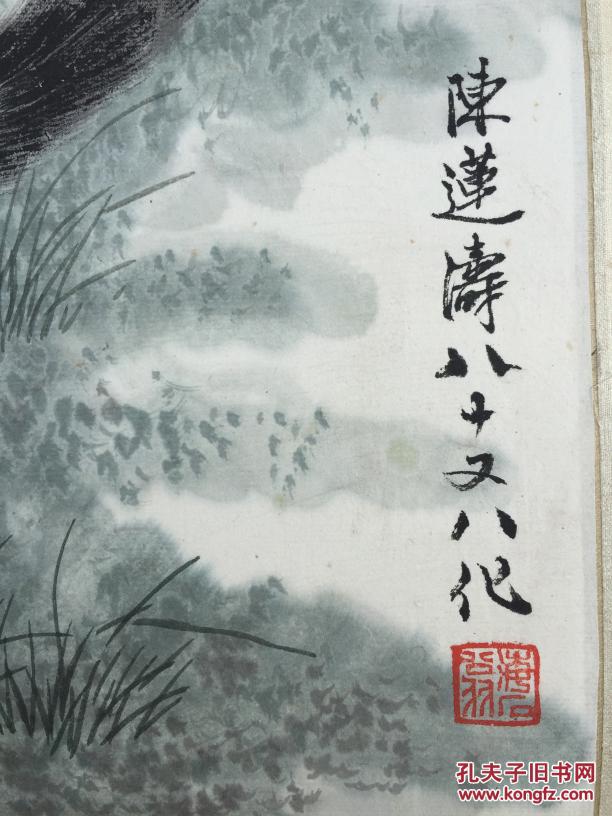 陳蓮濤八十又八作
孔夫子旧书网
www.kongfz.com